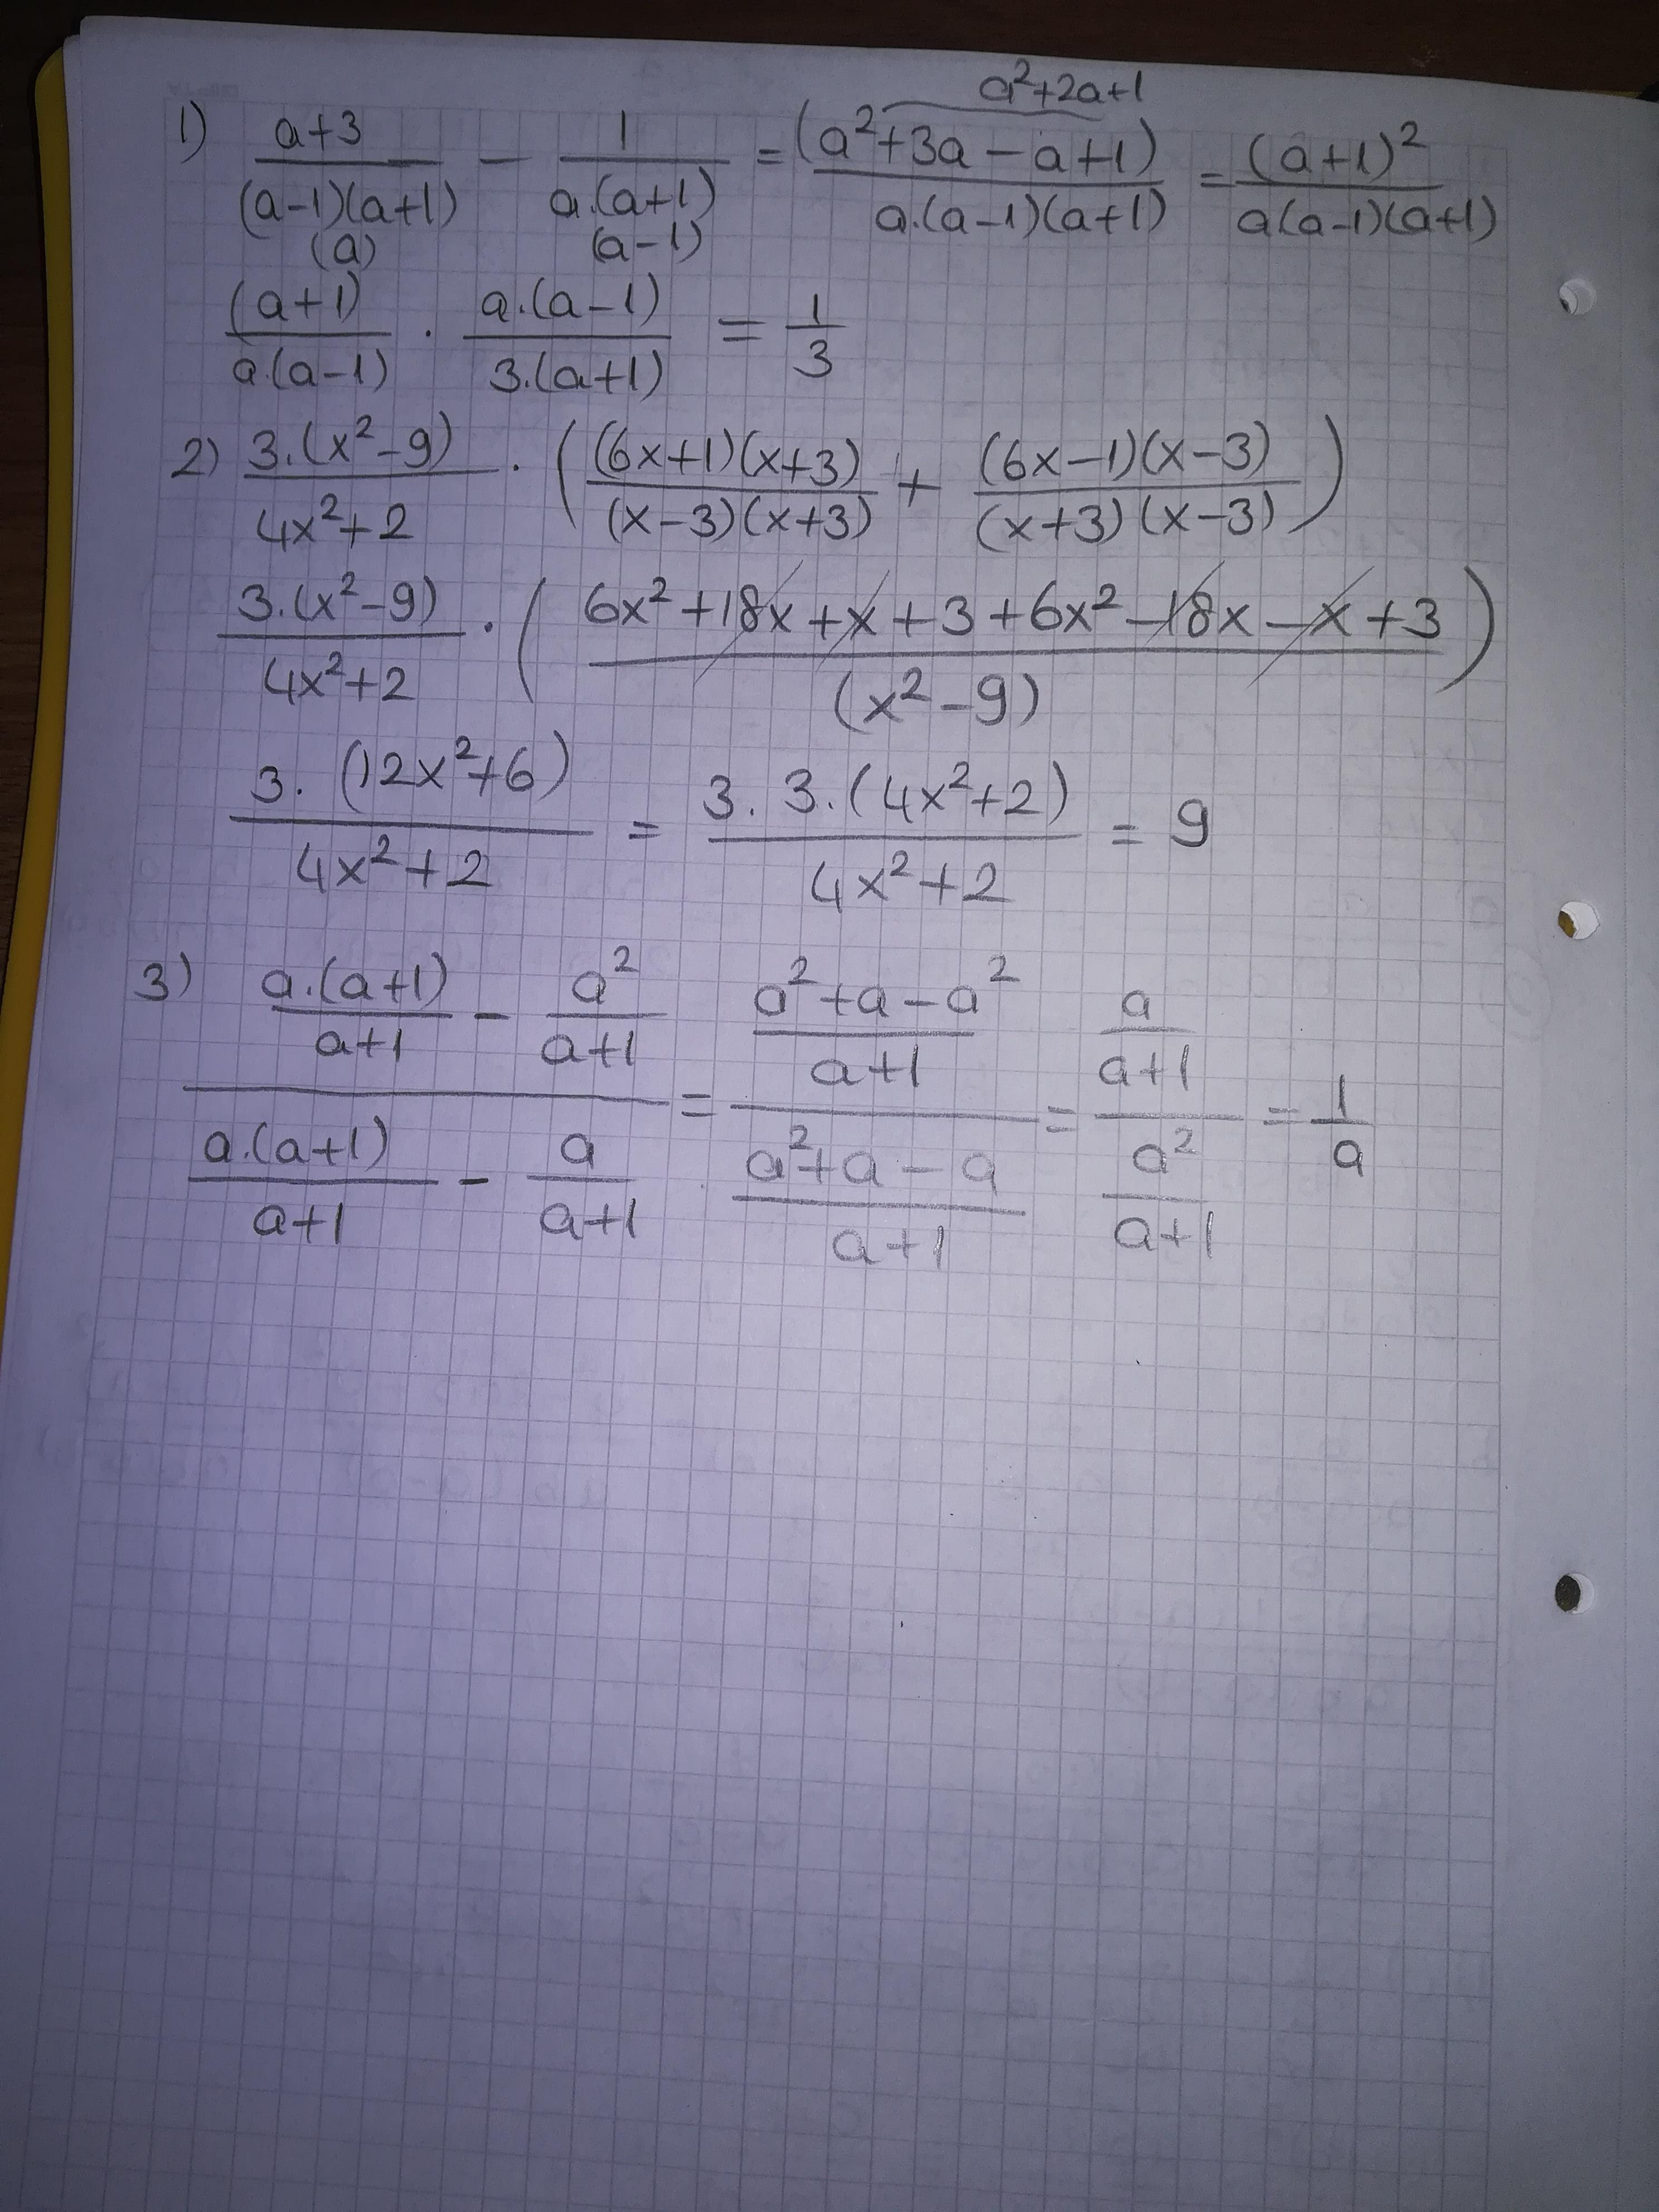 a²+2a+1
1) a+3/(a-1)(a+1) - 1/a.(a+1) = (a²+3a-a+1)/a.(a-1)(a+1) = (a+1)²/a(a-1)(a+1)
(a) (a-1)
(a+1)/a.(a-1) . a.(a-1)/3.(a+1) = 1/3
2) 3.(x²-9)/4x²+2 . ((6x+1)(x+3)/(x-3)(x+3) + (6x-1)(x-3)/(x+3)(x-3))
3.(x²-9)/4x²+2 . (6x²+18x+x+3+6x²-18x-x+3/(x²-9))
3.(12x²+6)/4x²+2 = 3.3.(4x²+2)/4x²+2 = 9
3) a.(a+1)/a+1 - a²/a+1 / a.(a+1)/a+1 - a/a+1 = a²+a-a²/a+1 / a²+a-a/a+1 = a/a+1 / a²/a+1 = 1/a